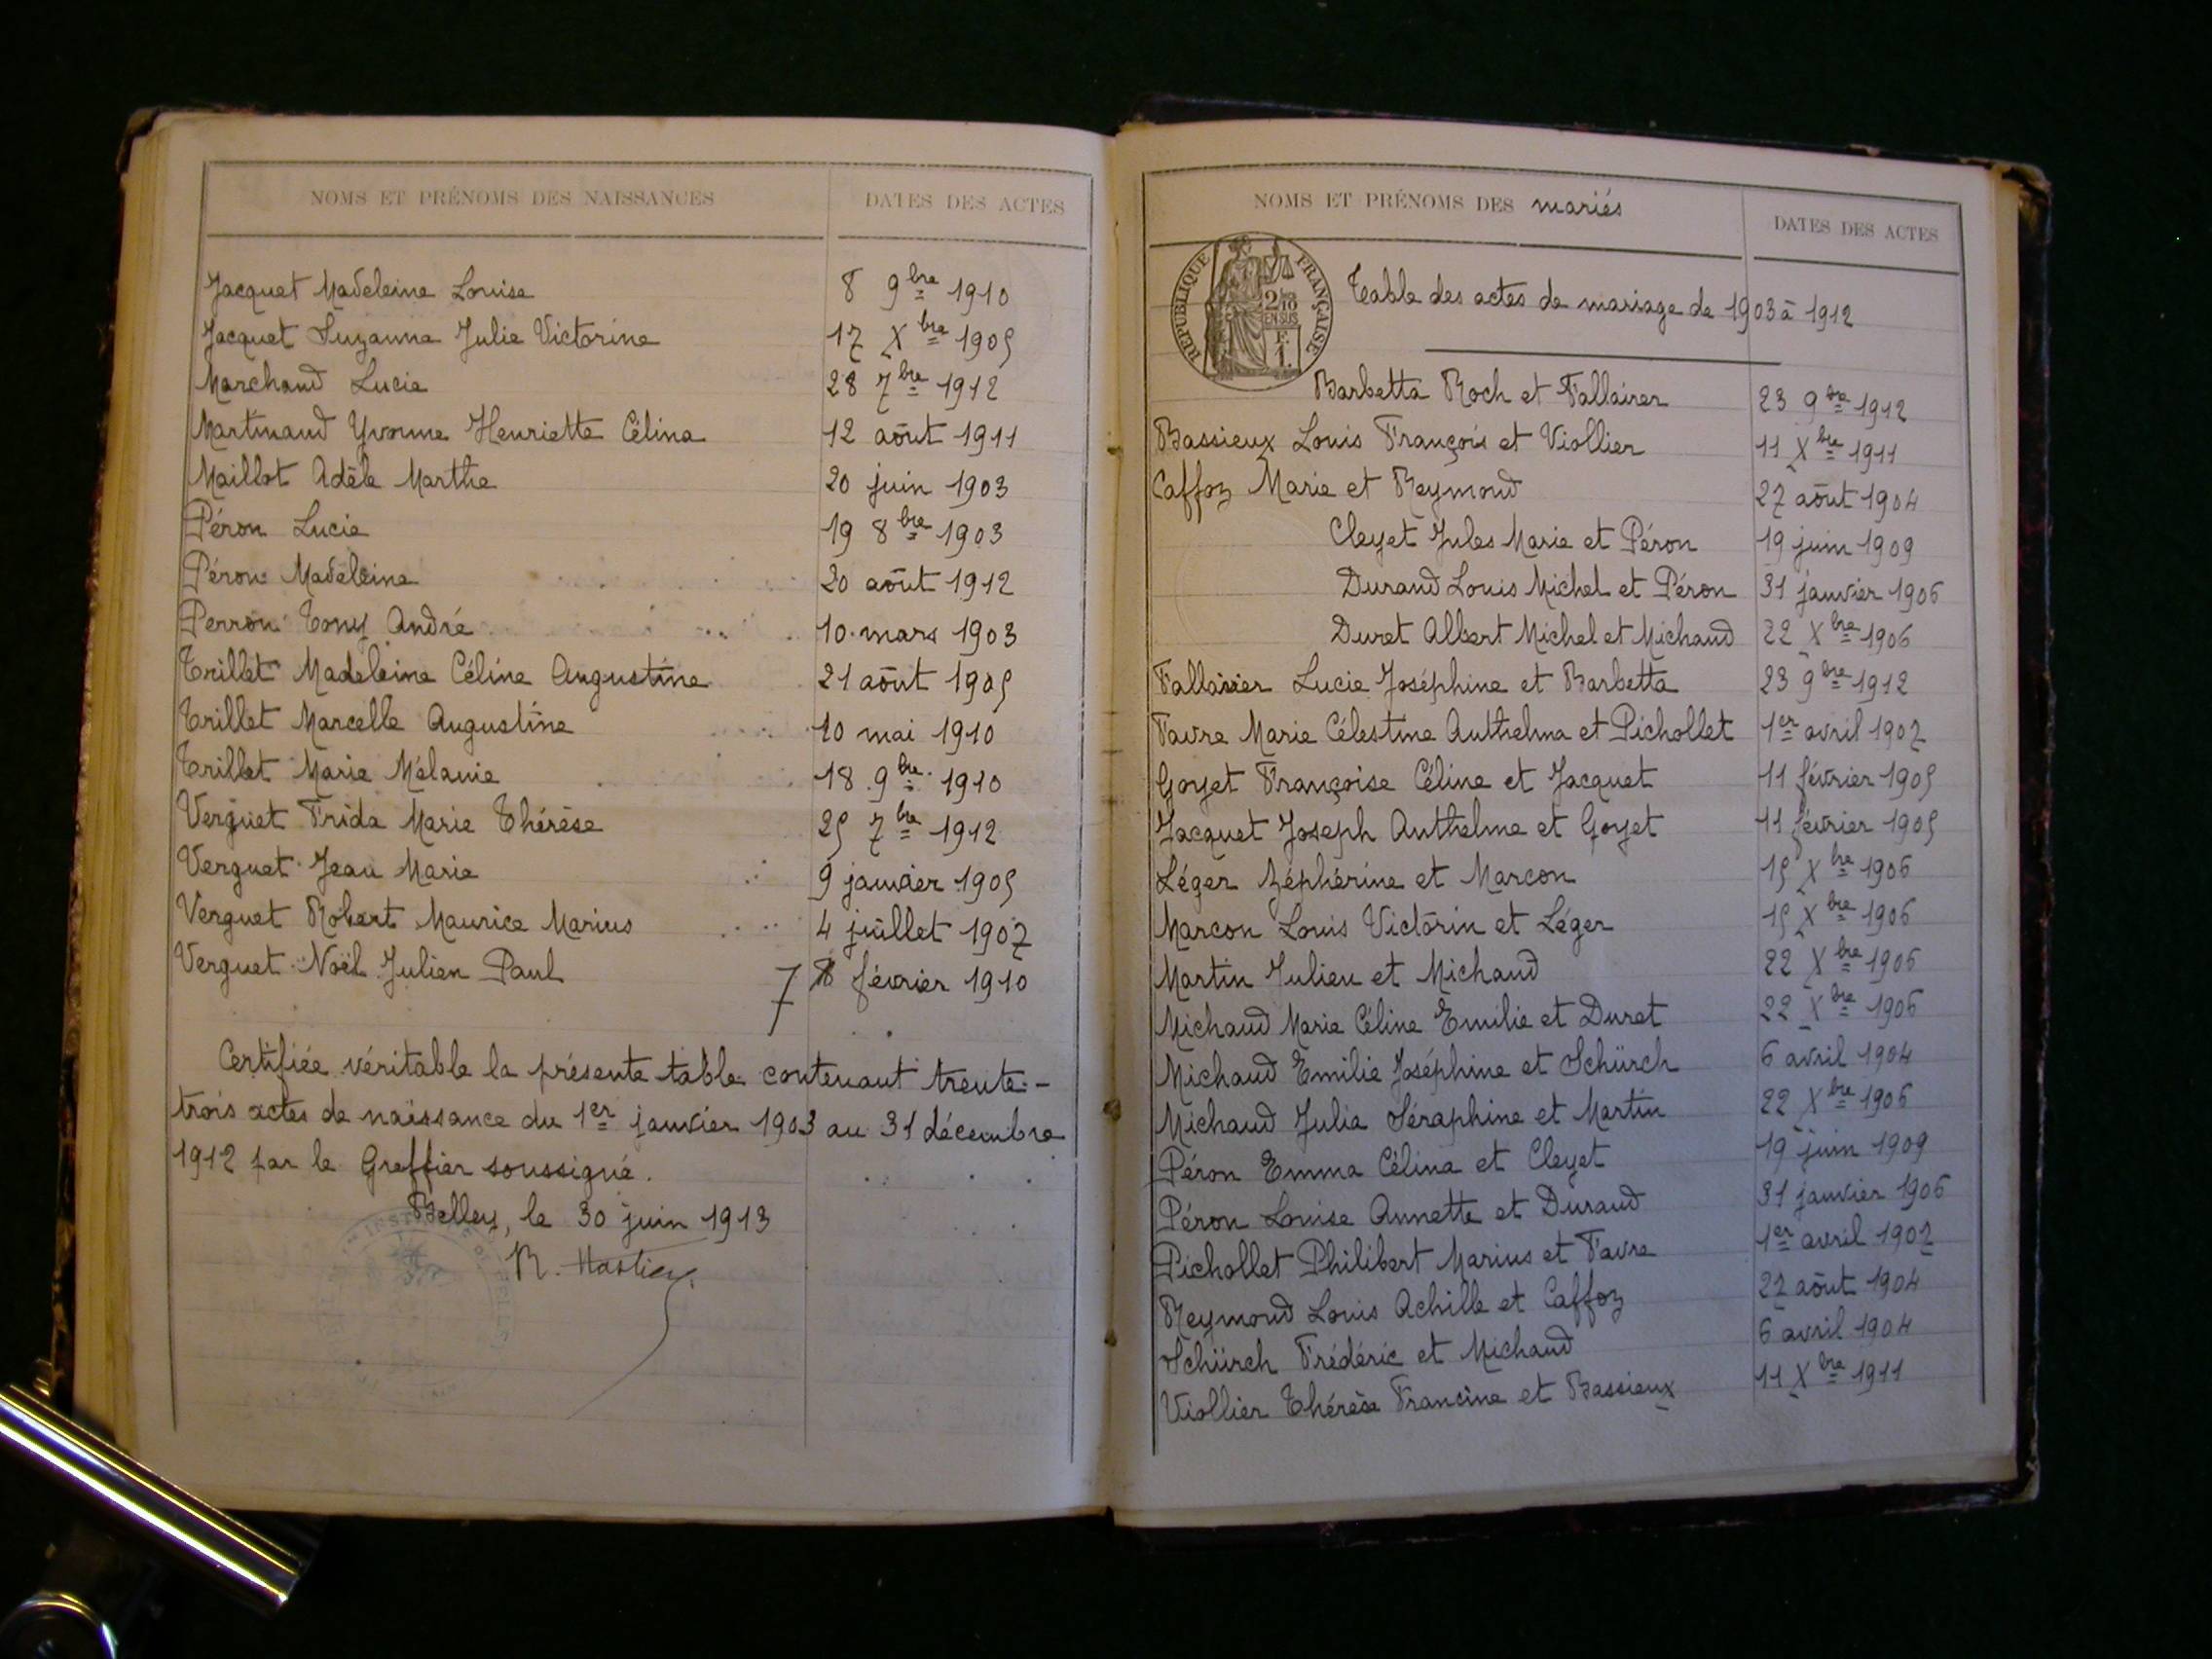 NOMS ET PRÉNOMS DES NAISSANCES DATES DES ACTES
Jacquet Madeleine Louise 8 9bre 1910
Jacquet Suzanne Julie Victorine 17 Xbre 1905
Marchand Lucie 28 7bre 1912
Martinand Yvonne Henriette Célina 12 août 1911
Maillot Adèle Marthe 20 juin 1903
Péron Lucie 19 8bre 1903
Péron Madeleine 20 août 1912
Perron Tony André 10 mars 1903
Trillet Madeleine Céline Augustine 21 août 1905
Trillet Marcelle Augustine 10 mai 1910
Trillet Marie Mélanie 18 9bre 1910
Verguet Frida Marie Thérèse 25 7bre 1912
Verguet Jean Marie 9 janvier 1905
Verguet Robert Maurice Marius 4 juillet 1907
Verguet Noël Julien Paul 7 février 1910
Certifiée véritable la présente table contenant trente-
trois actes de naissance du 1er janvier 1903 au 31 décembre
1912 par le Greffier soussigné.
Belley, le 30 juin 1913
NOMS ET PRÉNOMS DES mariés DATES DES ACTES
RÉPUBLIQUE FRANÇAISE
2/10 EN SUS
F. 1.
Table des actes de mariage de 1903 à 1912
Barbetta Roch et Fallavier 23 9bre 1912
Bassieux Louis François et Viollier 11 Xbre 1911
Caffoz Marie et Reymond 27 août 1904
Cleyet Jules Marie et Péron 19 juin 1909
Durand Louis Michel et Péron 31 janvier 1906
Duret Albert Michel et Michaud 22 Xbre 1906
Fallavier Lucie Joséphine et Barbetta 23 9bre 1912
Favre Marie Célestine Anthelma et Pichollet 1er avril 1907
Goyet Françoise Céline et Jacquet 11 février 1905
Jacquet Joseph Anthelme et Goyet 11 février 1905
Léger Zéphérine et Marcon 15 Xbre 1906
Marcon Louis Victorin et Léger 15 Xbre 1906
Martin Julien et Michaud 22 Xbre 1906
Michaud Marie Céline Emilie et Duret 22 Xbre 1906
Michaud Emilie Joséphine et Schürch 6 avril 1904
Michaud Julia Séraphine et Martin 22 Xbre 1906
Péron Emma Célina et Cleyet 19 juin 1909
Péron Louise Annette et Durand 31 janvier 1906
Pichollet Philibert Marius et Favre 1er avril 1907
Reymond Louis Achille et Caffoz 27 août 1904
Schürch Frédéric et Michaud 6 avril 1904
Viollier Thérèse Francine et Bassieux 11 Xbre 1911